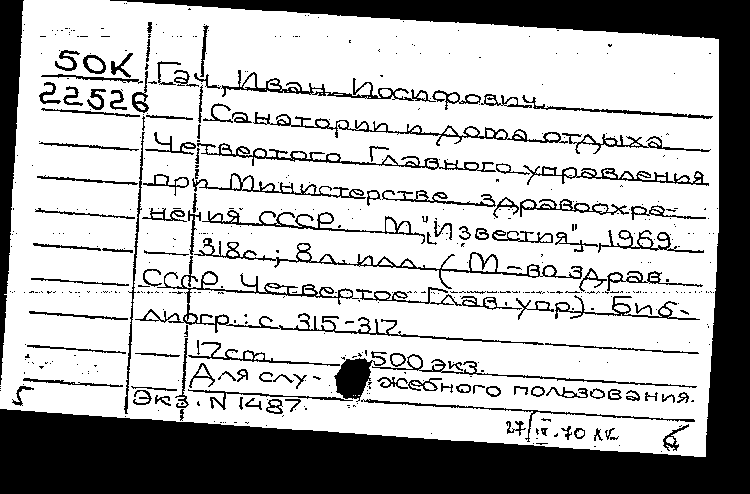 50К Гач, Иван Иосифович.
22526
Санатории и дома отдыха
Четвертого Главного управления
при Министерстве здравоохра-
нения СССР. М., "Известия", 1969.
318с.; 8л. илл. (М-во здрав.
СССР. Четвертое Глав. упр.). Биб-
лиогр.: с. 315-317.
17cm. 1500 экз.
Для слу- жебного пользования.
Экз. N 1487.
5 27/IX.70 6